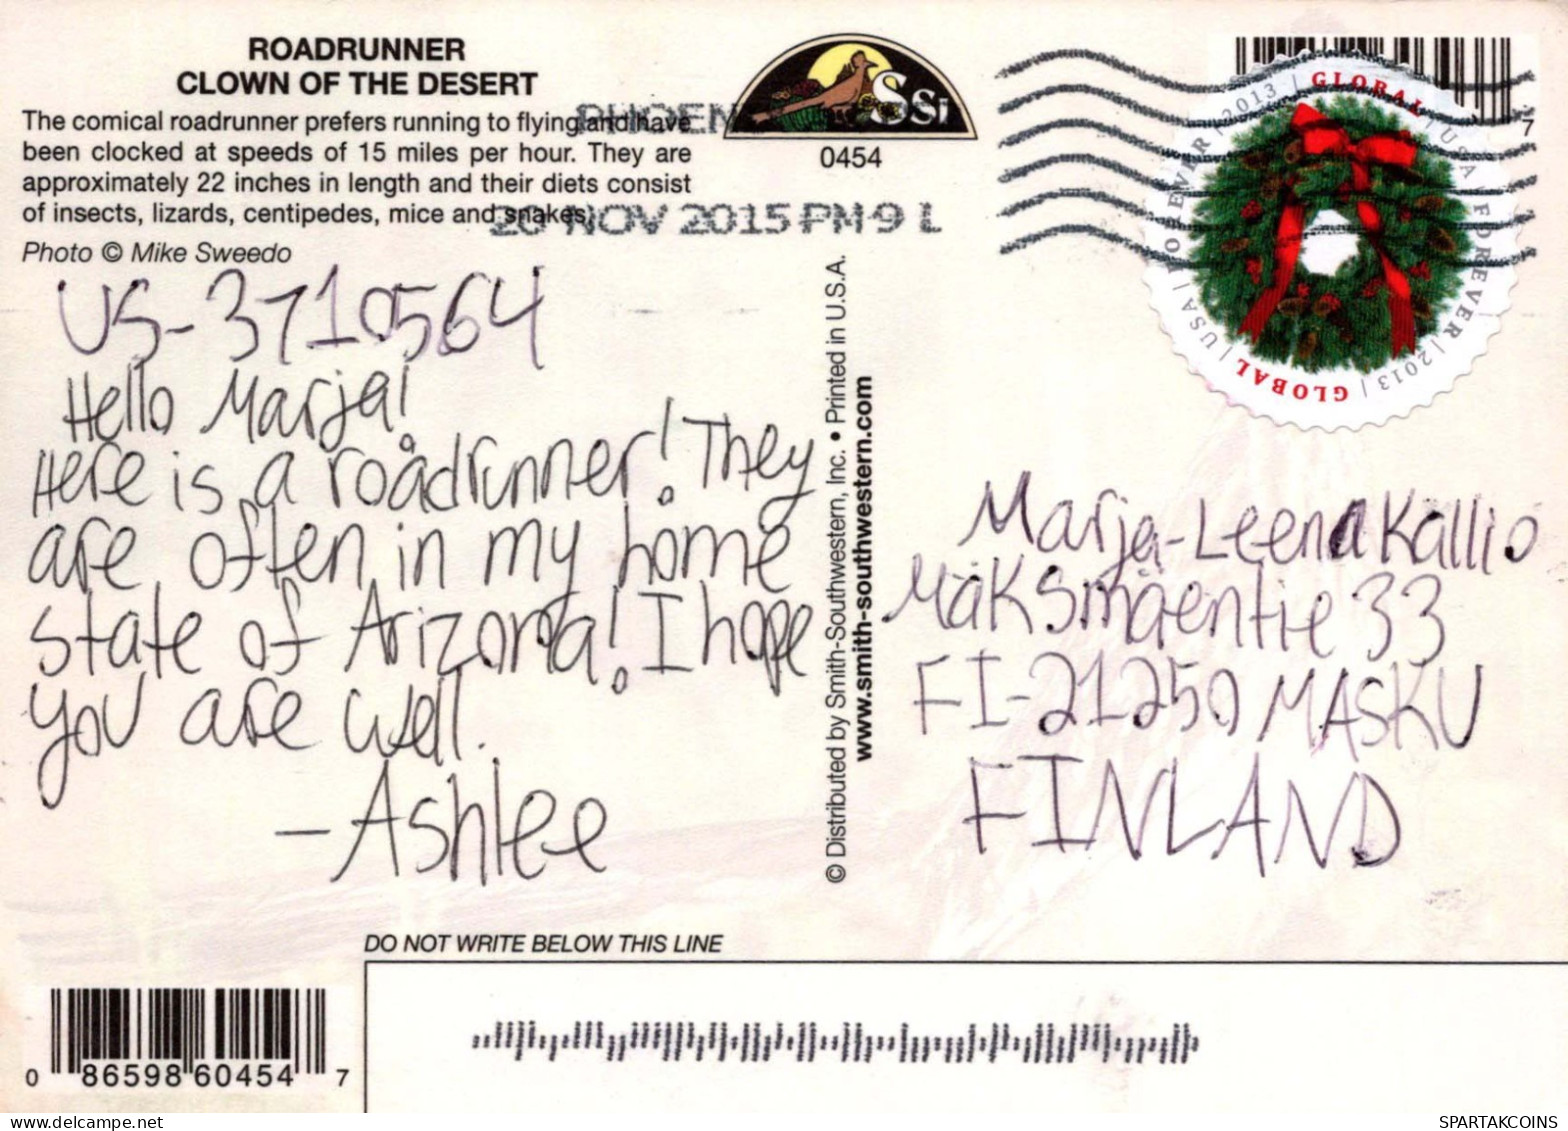 ROADRUNNER
CLOWN OF THE DESERT
The comical roadrunner prefers running to flying and have
been clocked at speeds of 15 miles per hour. They are
approximately 22 inches in length and their diets consist
of insects, lizards, centipedes, mice and snakes.
Photo © Mike Sweedo
SSi
0454
20 NOV 2015 PM 9 L
GLOBAL | USA | FOREVER | 2013 | GLOBAL | USA | FOREVER | 2013 |
7
US-3710564
Hello Marja!
Here is a roadrunner! They
are often in my home
state of Arizona! I hope
you are well.
-Ashlee
© Distributed by Smith-Southwestern, Inc. • Printed in U.S.A.
www.smith-southwestern.com
Marja-Leena Kallio
Mäksmäentie 33
FI-21250 MASKU
FINLAND
DO NOT WRITE BELOW THIS LINE
0 86598 60454 7
SPARTAKCOINS